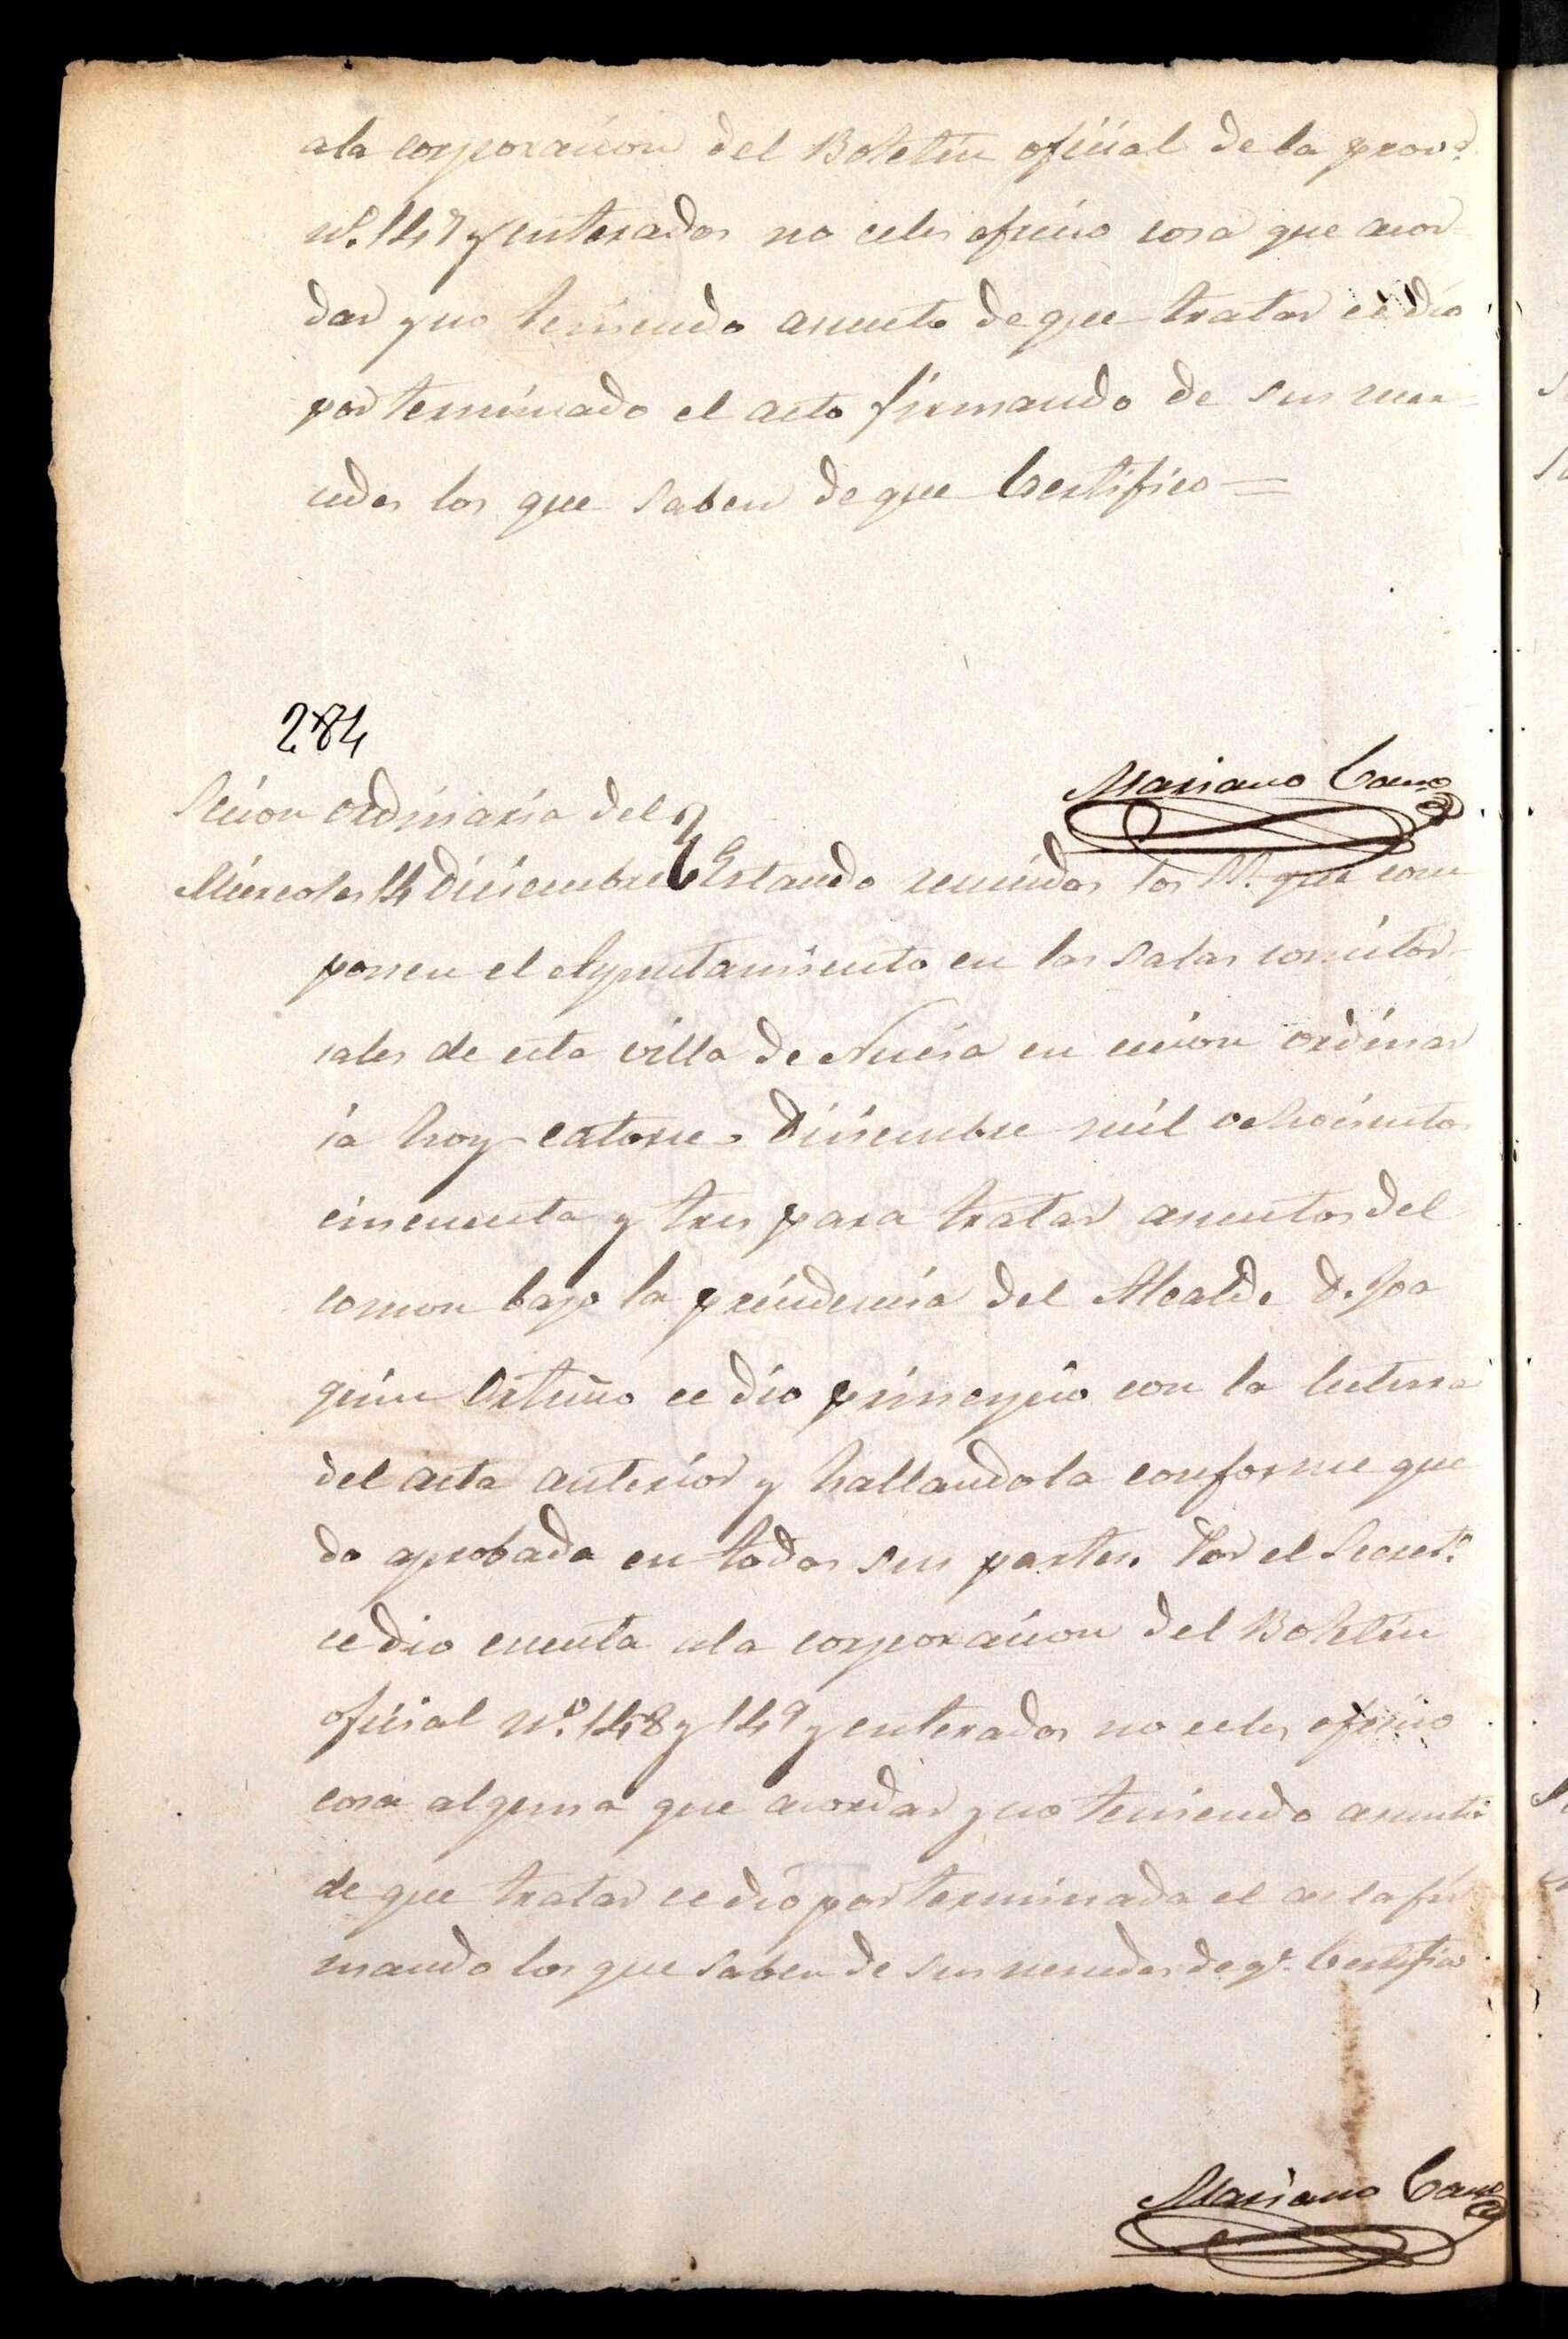 ala corporacion del Boletin oficial de la prov.ª
nº. 147 y enterados no celes ofrecio cosa que acor
dar y no teniendo asunto de que tratar ce dio
por terminado el acto firmando de sus mer
cedes los que saben de que Certifico =
284
Mariano Cano
Secion ordinaria del
Miercoles 14 Diciembre
Estando reunidos los SS. que com
ponen el Ayuntamiento en las salas consistor
iales de esta villa de Nucia en cecion ordinar
ia hoy catorce Diciembre mil ochocientos
cincuenta y tres para tratar asuntos del
comun bajo la precidencia del Alcalde D. Joa
quin Ortuño ce dio principio con la lectura
del acta anterior y hallandola conforme que
do aprobada en todas sus partes. Por el Secret.º
ce dio cuenta ala corporacion del Boletin
oficial nº. 148 y 149 y enterados no celes ofrecio
cosa alguna que acordar y no teniendo asunto
de que tratar ce dio por terminada el acta fir
mando los que saben de sus mercedes de q.e Certifico
Mariano Cano